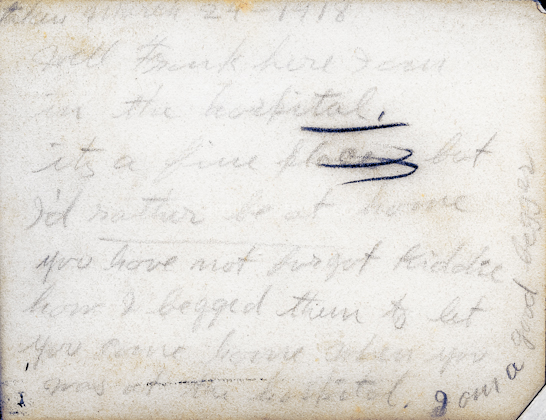 taken March 24 - 1918
Well Frank here I am
in the hospital.
its a fine place but
I'd rather be at home
you have not forgot kiddie
how I begged them to let
you come home when you
was at the hospital.
I am a good begger